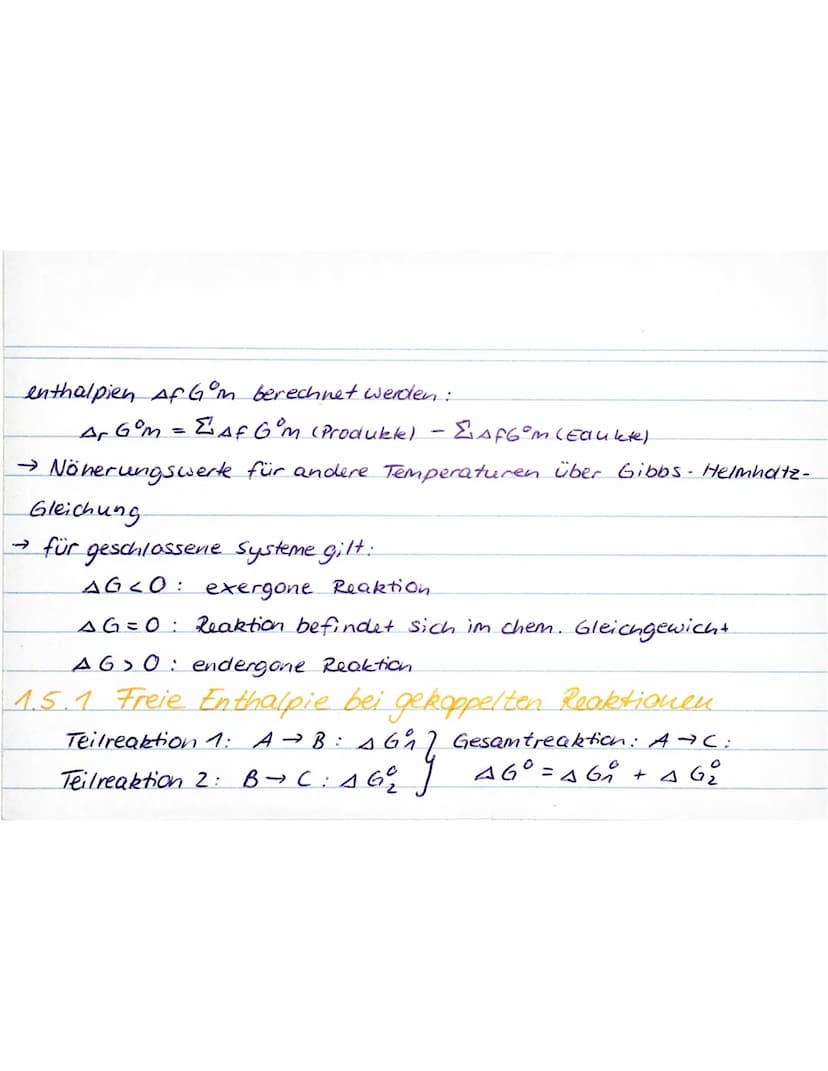 enthalpien ΔfG°m berechnet werden:
ΔrG°m = ΣΔfG°m (Produkte) − ΣΔfG°m (Edukte)
→ Näherungswerte für andere Temperaturen über Gibbs-Helmholtz-
Gleichung
→ für geschlossene Systeme gilt:
ΔG<0: exergone Reaktion
ΔG=0: Reaktion befindet sich im chem. Gleichgewicht
ΔG>0: endergone Reaktion
1.5.1 Freie Enthalpie bei gekoppelten Reaktionen
Teilreaktion 1: A → B: ΔG°₁ } Gesamtreaktion: A → C:
Teilreaktion 2: B → C: ΔG°₂ } ΔG° = ΔG°₁ + ΔG°₂